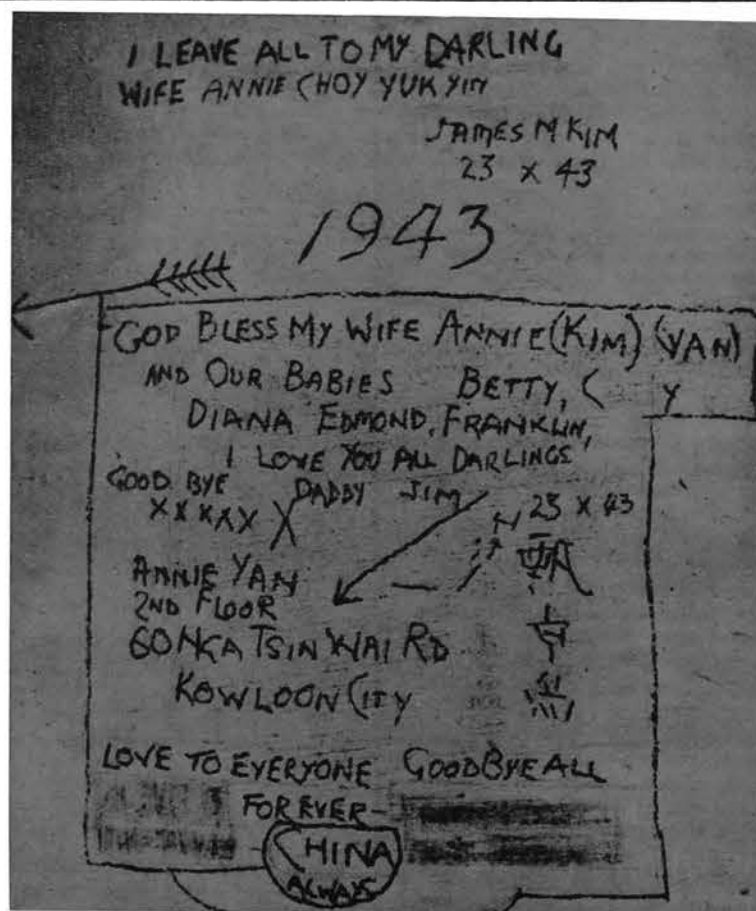 I LEAVE ALL TO MY DARLING
WIFE ANNIE CHOY YUK YIN
JAMES M KIM
23 X 43
1943
GOD BLESS MY WIFE ANNIE (KIM) (YAN)
AND OUR BABIES BETTY, ( Y
DIANA EDMOND, FRANKLIN,
I LOVE YOU ALL DARLINGS
GOOD BYE DADDY JIM
XXXXX X
23 X 43
ANNIE YAN
2ND FLOOR
NGA TSIN WAI RD
KOWLOON CITY
LOVE TO EVERYONE GOODBYE ALL
FOREVER-
CHINA
ALWAYS